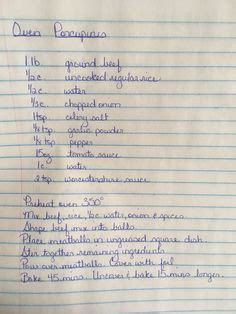 Oven Porcupines
1 lb. ground beef
1/2 c. uncooked regular rice
1/2 c. water
1/3 c. chopped onion
1 tsp. celery salt
1/8 tsp. garlic powder
1/8 tsp. pepper
15 oz. tomato sauce
1 c. water
2 tsp. worcestershire sauce
Preheat oven 350°
Mix beef, rice, 1/2 c water, onion & spices.
Shape beef mix into balls.
Place meatballs in ungreased square dish.
Stir together remaining ingredients.
Pour over meatballs. Cover with foil
Bake 45 mins. Uncover & bake 15 mins longer.